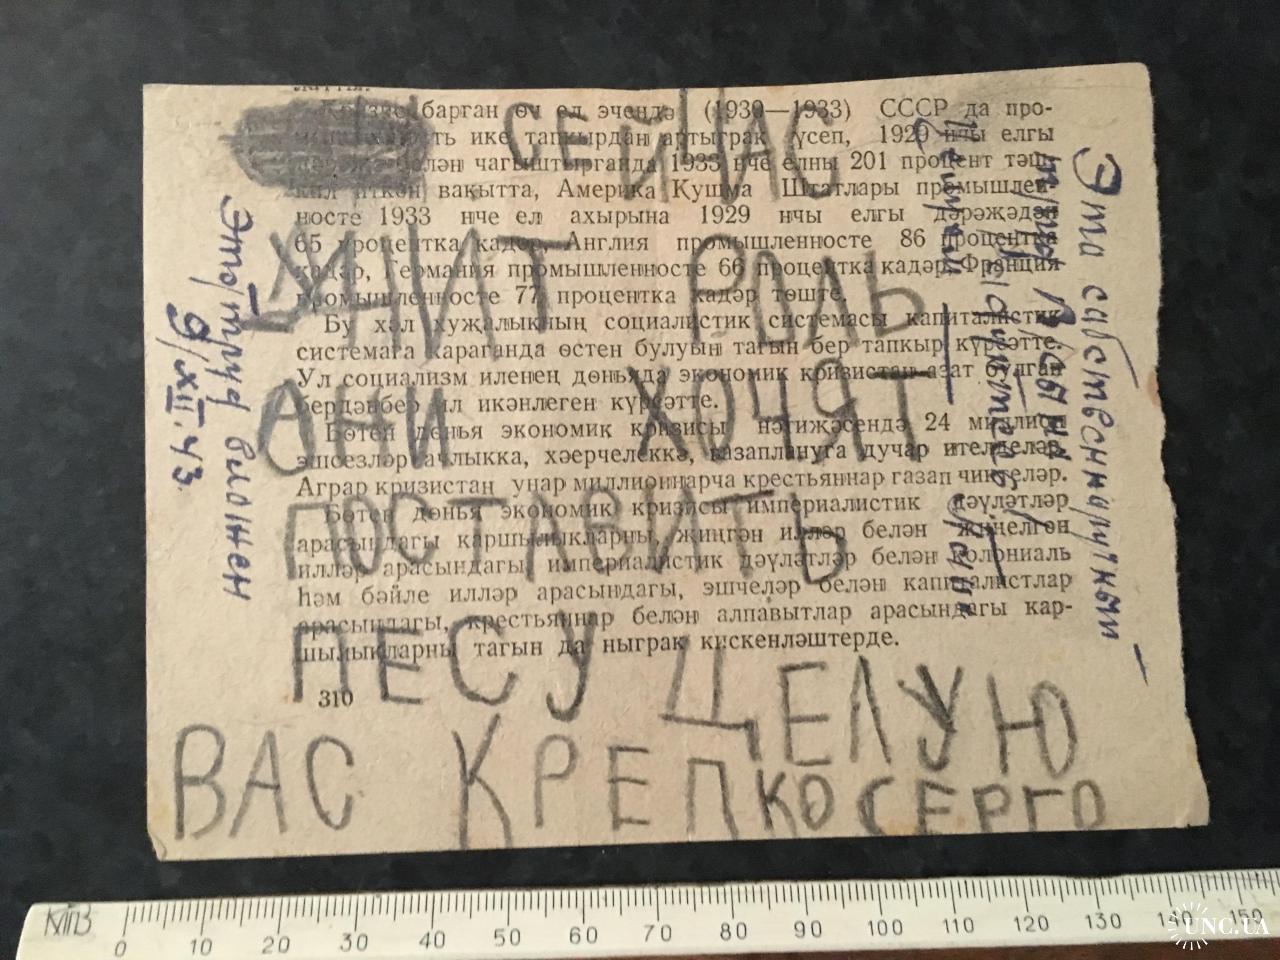 Кризис барган өч ел эчендә (1930—1933) СССР да про-
ть ике тапкырдан артыграк үсеп, 1929 нчы елгы
белән чагыштырганда 1933 нче елны 201 процент тәш-
кил иткән вакытта, Америка Кушма Штатлары промышлен-
носте 1933 нче ел ахырына 1929 нчы елгы дәрәҗәдән
65 процентка кадәр, Англия промышленносте 86 процентка
кадәр, Германия промышленносте 66 процентка кадәр, Франция
промышленносте 77 процентка кадәр төште.
Бу хәл хуҗалыкның социалистик системасы капиталистик
системага караганда өстен булуын тагын бер тапкыр күрсәтте.
Ул социализм иленең дөньяда экономик кризистан азат булган
бердәнбер ил икәнлеген күрсәтте.
Бөтен дөнья экономик кризисы нәтиҗәсендә 24 миллион
эшсезләр ачлыкка, хәерчелеккә, газаплануга дучар ителделәр.
Аграр кризистан унар миллионнарча крестьяннар газап чиктеләр.
Бөтен дөнья экономик кризисы империалистик дәүләтләр
арасындагы каршылыкларны, җиңгән илләр белән җиңелгән
илләр арасындагы, империалистик дәүләтләр белән колониаль
һәм бәйле илләр арасындагы, эшчеләр белән капиталистлар
арасындагы, крестьяннар белән алпавытлар арасындагы кар-
шылыкларны тагын да ныграк кискенләштерде.
310
СЕЙЧАС
УЧИТ РОЛЬ
АНИ ХОЧЯТ
ПСТАВИТЬ
ПЕСУ ЦЕЛУЮ
ВАС КРЕПКО СЕРГО
Это собственноручный
труд
Этот труд вложен
9/XII.43.
МПВ
0 10 20 30 40 50 60 70 80 90 100 110 120 130 140 150
UNC.UA